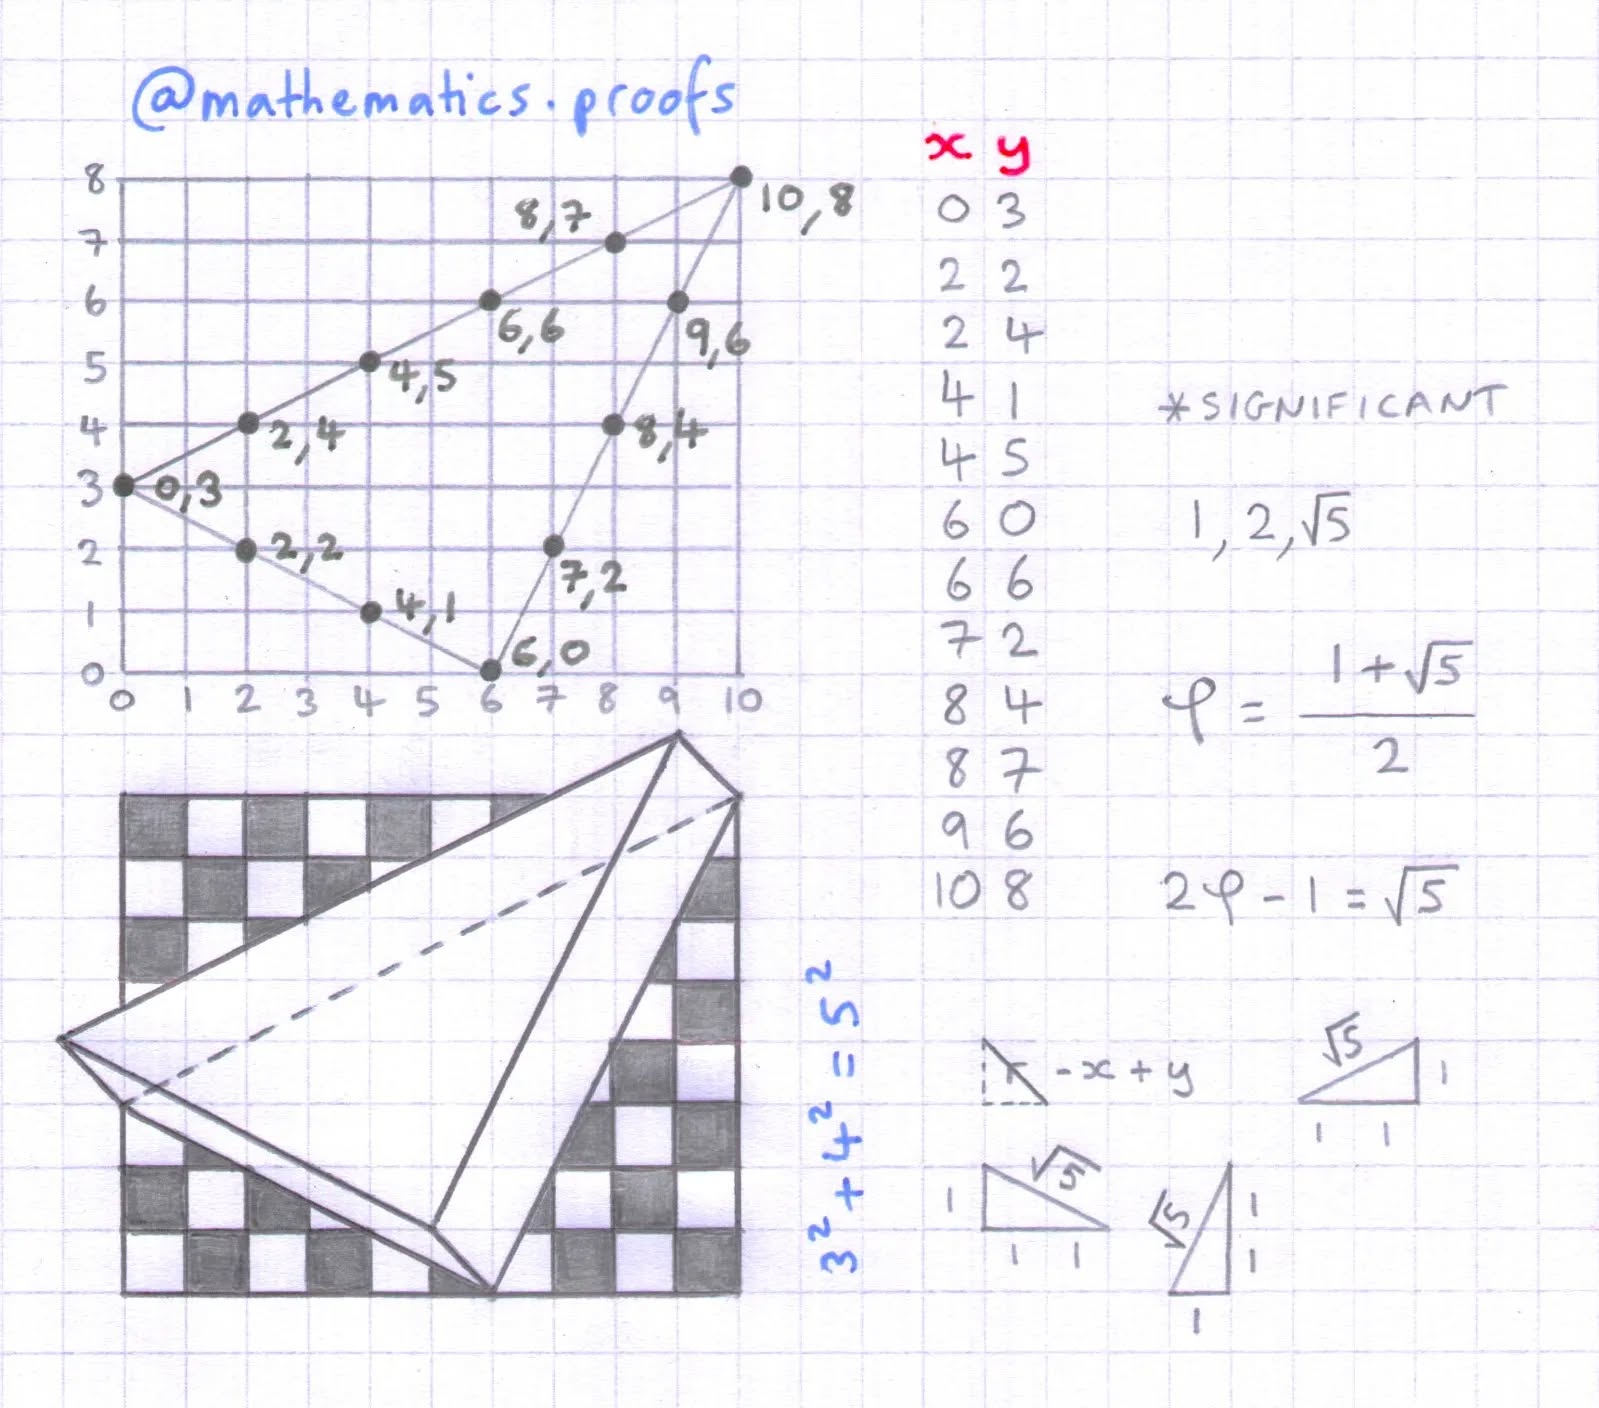 @mathematics.proofs
8
7
6
5
4
3
2
1
0
0 1 2 3 4 5 6 7 8 9 10
10,8
8,7
6,6
9,6
4,5
2,4
8,4
0,3
2,2
7,2
4,1
6,0
x y
0 3
2 2
2 4
4 1
4 5
6 0
6 6
7 2
8 4
8 7
9 6
10 8
*SIGNIFICANT
1, 2, √5
φ = (1 + √5) / 2
2φ - 1 = √5
3² + 4² = 5²
-x + y
√5
1
1 1
√5
1
1 1
√5
1
1
1